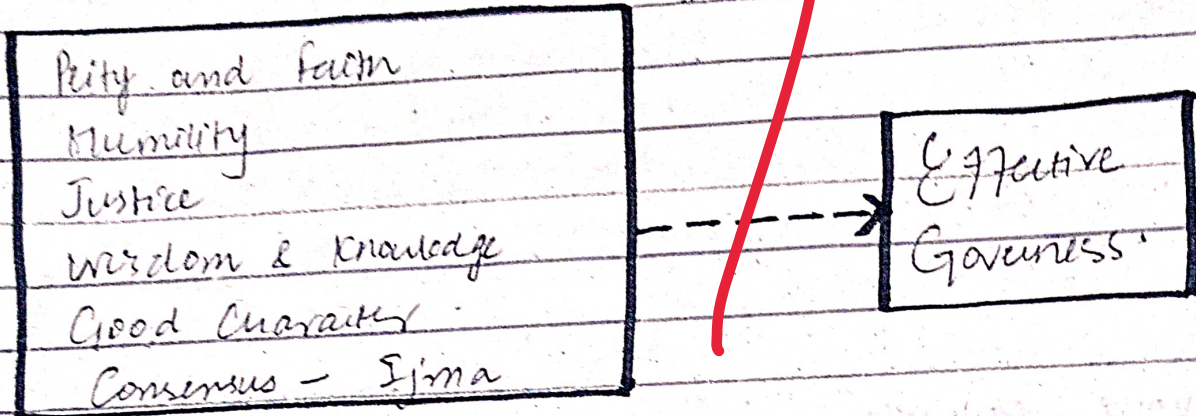 Peity and Faith
Humility
Justice
wisdom & Knowledge
Good Character
Consensus - Ijma
Effective
Governess.